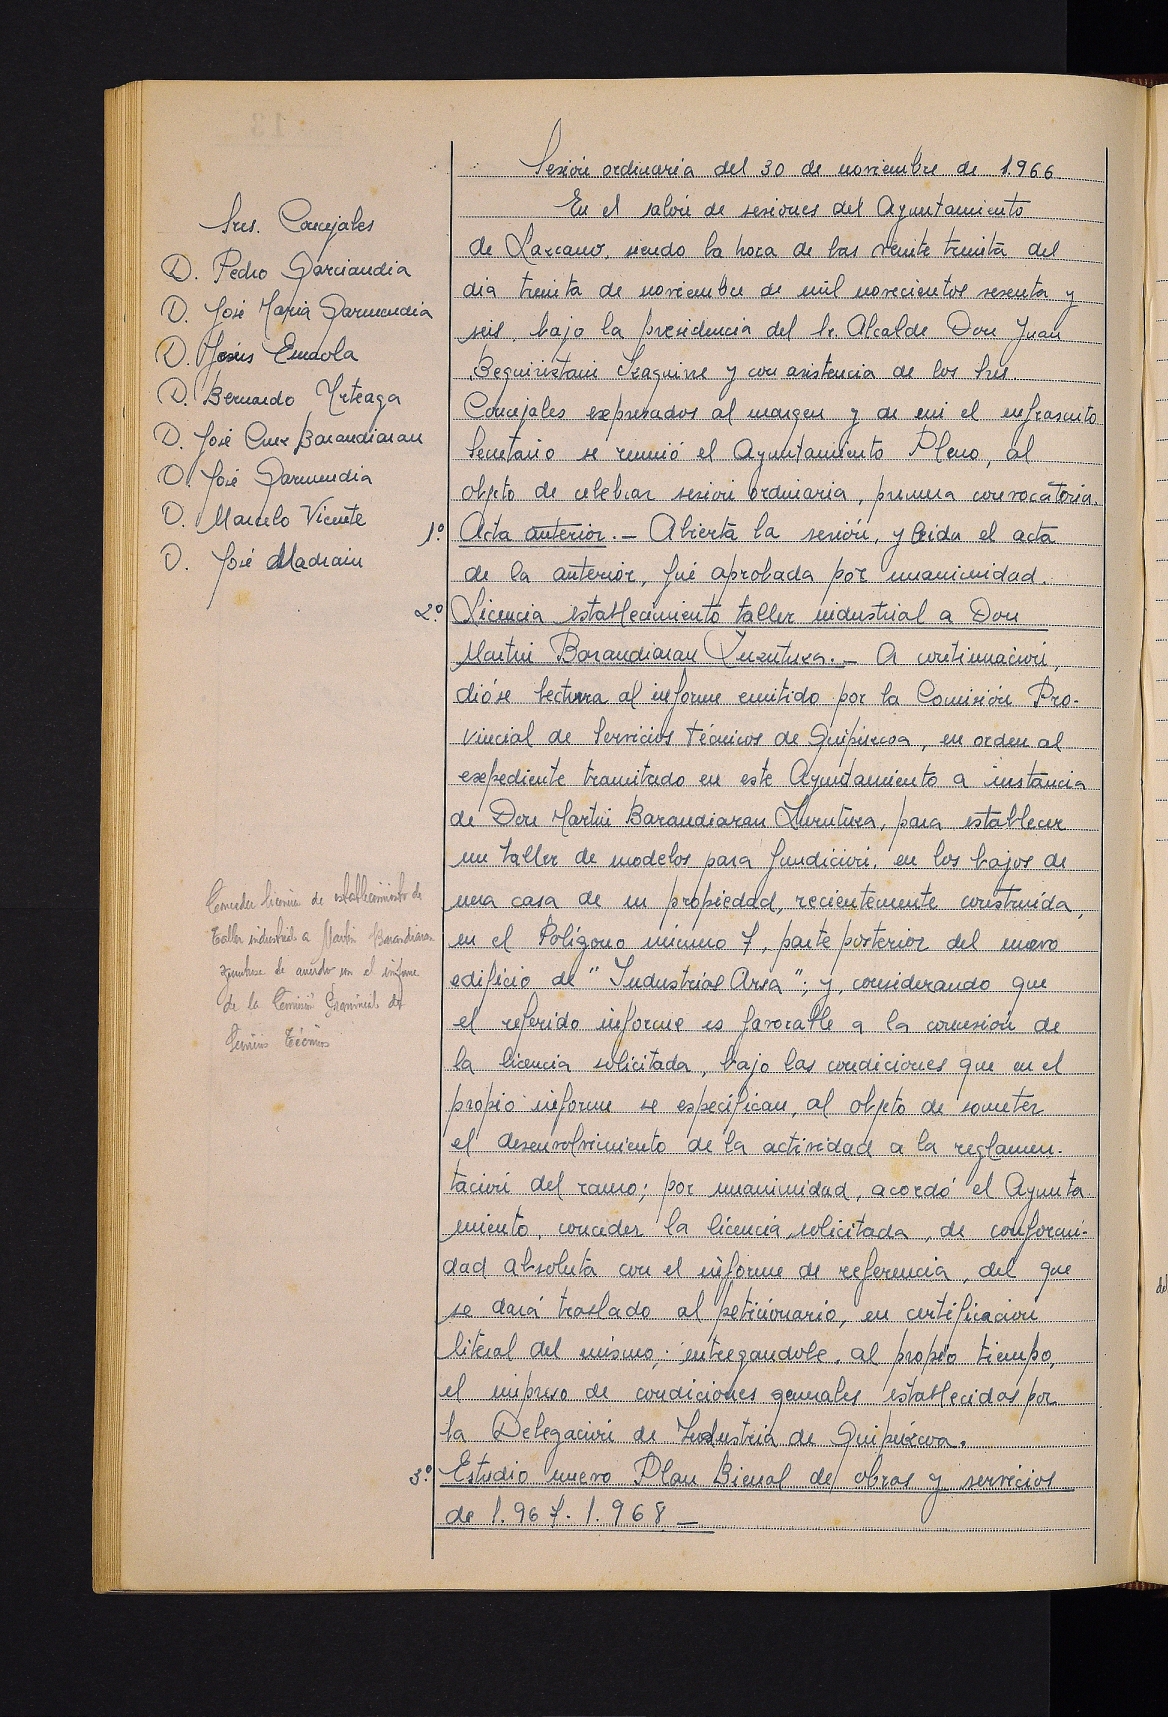 Sesión ordinaria del 30 de noviembre de 1.966
Srs. Concejales
D. Pedro Garciandia
D. José María Garmendia
D. Jesús Emaola
D. Bernardo Urteaga
D. José Cruz Barandiaran
D. José Garmendia
D. Marcelo Vicente
D. José Madrain
En el salón de sesiones del Ayuntamiento
de Lazcano, siendo la hora de las veinte treinta del
dia treinta de noviembre de mil novecientos sesenta y
seis, bajo la presidencia del Sr. Alcalde Don Juan
Beguiristain Izaguirre y con asistencia de los Sres.
Concejales expresados al margen y de mi el infrascrito
Secretario se reunió el Ayuntamiento Pleno, al
objeto de celebrar sesión ordinaria, primera convocatoria.
1º. Acta anterior. — Abierta la sesión, y leida el acta
de la anterior, fué aprobada por unanimidad.
2º. Licencia establecimiento taller industrial a Don
Martin Barandiaran Zurutuza. — A continuación,
dióse lectura al informe emitido por la Comisión Pro-
vincial de Servicios Técnicos de Guipúzcoa, en orden al
expediente tramitado en este Ayuntamiento a instancia
de Don Martin Barandiaran Zurutuza, para establecer
un taller de modelos para fundición, en los bajos de
una casa de su propiedad, recientemente construida,
en el Polígono número 7, parte posterior del nuevo
edificio de "Industrias Arsa"; y, considerando que
el referido informe es favorable a la concesión de
la licencia solicitada, bajo las condiciones que en el
propio informe se especifican, al objeto de someter
el desenvolvimiento de la actividad a la reglamen-
tación del ramo; por unanimidad, acordó el Ayunta
miento, conceder la licencia solicitada, de conformi-
dad absoluta con el informe de referencia, del que
se dará traslado al peticionario, en certificación
literal del mismo; entregandole, al propio tiempo,
el impreso de condiciones generales establecidas por
la Delegación de Industria de Guipúzcoa.
Conceder licencia de establecimiento de
taller industrial a Martin Barandiaran
de acuerdo con el informe
de la Comisión Provincial de
Servicios Técnicos
3º. Estudio nuevo Plan Bienal de obras y servicios
de 1.967-1.968 —